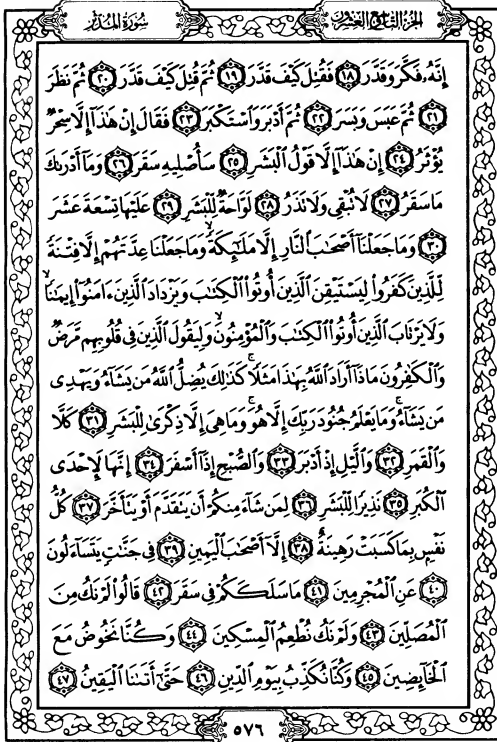 سُورَةُ المُدَّثِّر
الجُزْءُ التَّاسِعُ وَالعِشْرُونَ
إِنَّهُۥ فَكَّرَ وَقَدَّرَ ١٨ فَقُتِلَ كَيْفَ قَدَّرَ ١٩ ثُمَّ قُتِلَ كَيْفَ قَدَّرَ ٢٠ ثُمَّ نَظَرَ
٢١ ثُمَّ عَبَسَ وَبَسَرَ ٢٢ ثُمَّ أَدْبَرَ وَٱسْتَكْبَرَ ٢٣ فَقَالَ إِنْ هَٰذَآ إِلَّا سِحْرٌ
يُؤْثَرُ ٢٤ إِنْ هَٰذَآ إِلَّا قَوْلُ ٱلْبَشَرِ ٢٥ سَأُصْلِيهِ سَقَرَ ٢٦ وَمَآ أَدْرَىٰكَ
مَا سَقَرُ ٢٧ لَا تُبْقِى وَلَا تَذَرُ ٢٨ لَوَّاحَةٌ لِّلْبَشَرِ ٢٩ عَلَيْهَا تِسْعَةَ عَشَرَ
٣٠ وَمَا جَعَلْنَآ أَصْحَٰبَ ٱلنَّارِ إِلَّا مَلَٰٓئِكَةً ۙ وَمَا جَعَلْنَا عِدَّتَهُمْ إِلَّا فِتْنَةً
لِّلَّذِينَ كَفَرُوا۟ لِيَسْتَيْقِنَ ٱلَّذِينَ أُوتُوا۟ ٱلْكِتَٰبَ وَيَزْدَادَ ٱلَّذِينَ ءَامَنُوٓا۟ إِيمَٰنًا ۙ
وَلَا يَرْتَابَ ٱلَّذِينَ أُوتُوا۟ ٱلْكِتَٰبَ وَٱلْمُؤْمِنُونَ ۙ وَلِيَقُولَ ٱلَّذِينَ فِى قُلُوبِهِم مَّرَضٌ
وَٱلْكَٰفِرُونَ مَاذَآ أَرَادَ ٱللَّهُ بِهَٰذَا مَثَلًا ۚ كَذَٰلِكَ يُضِلُّ ٱللَّهُ مَن يَشَآءُ وَيَهْدِى
مَن يَشَآءُ ۚ وَمَا يَعْلَمُ جُنُودَ رَبِّكَ إِلَّا هُوَ ۚ وَمَا هِىَ إِلَّا ذِكْرَىٰ لِلْبَشَرِ ٣١ كَلَّا
وَٱلْقَمَرِ ٣٢ وَٱلَّيْلِ إِذْ أَدْبَرَ ٣٣ وَٱلصُّبْحِ إِذَآ أَسْفَرَ ٣٤ إِنَّهَا لَإِحْدَى
ٱلْكُبَرِ ٣٥ نَذِيرًا لِّلْبَشَرِ ٣٦ لِمَن شَآءَ مِنكُمْ أَن يَتَقَدَّمَ أَوْ يَتَأَخَّرَ ٣٧ كُلُّ
نَفْسٍۭ بِمَا كَسَبَتْ رَهِينَةٌ ٣٨ إِلَّآ أَصْحَٰبَ ٱلْيَمِينِ ٣٩ فِى جَنَّٰتٍ يَتَسَآءَلُونَ
٤٠ عَنِ ٱلْمُجْرِمِينَ ٤١ مَا سَلَكَكُمْ فِى سَقَرَ ٤٢ قَالُوا۟ لَمْ نَكُ مِنَ
ٱلْمُصَلِّينَ ٤٣ وَلَمْ نَكُ نُطْعِمُ ٱلْمِسْكِينَ ٤٤ وَكُنَّا نَخُوضُ مَعَ
ٱلْخَآئِضِينَ ٤٥ وَكُنَّا نُكَذِّبُ بِيَوْمِ ٱلدِّينِ ٤٦ حَتَّىٰٓ أَتَىٰنَا ٱلْيَقِينُ ٤٧
٥٧٦